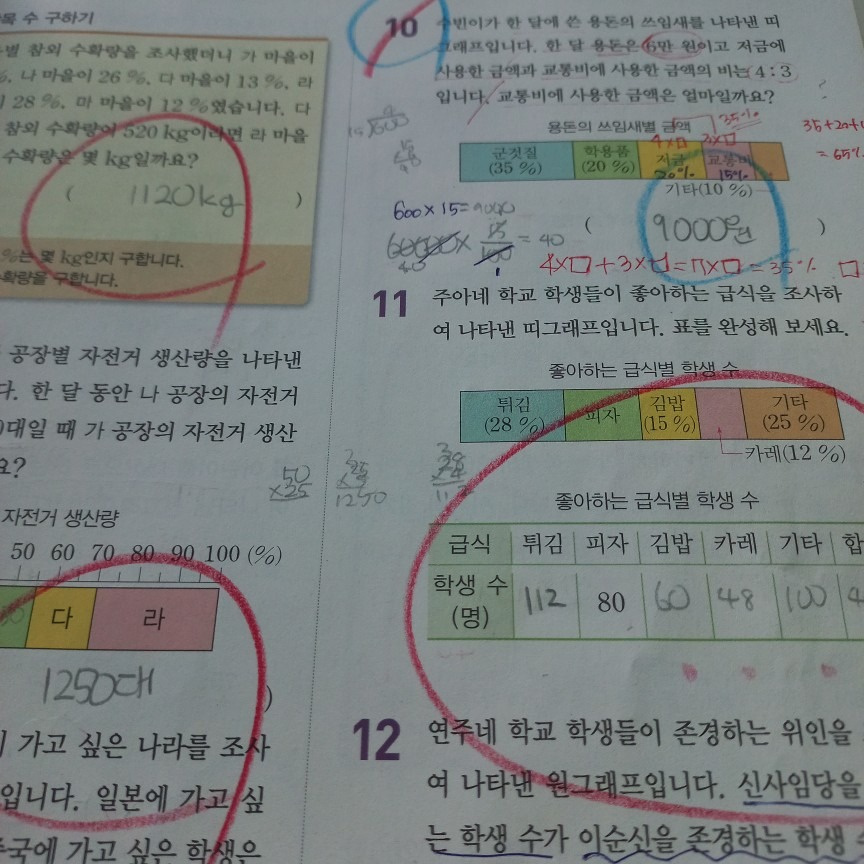 목 수 구하기
별 참외 수확량을 조사했더니 가 마을이
%, 나 마을이 26 %, 다 마을이 13 %, 라
28 %, 마 마을이 12 %였습니다. 다
참외 수확량이 520 kg이라면 라 마을
수확량은 몇 kg일까요?
( 1120kg )
%는 몇 kg인지 구합니다.
확량을 구합니다.
공장별 자전거 생산량을 나타낸
다. 한 달 동안 나 공장의 자전거
대일 때 가 공장의 자전거 생산
요?
50
×25
25
1250
자전거 생산량
50 60 70 80 90 100 (%)
다 라
1250대 )
가고 싶은 나라를 조사
입니다. 일본에 가고 싶
중국에 가고 싶은 학생은
10 수빈이가 한 달에 쓴 용돈의 쓰임새를 나타낸 띠
그래프입니다. 한 달 용돈은 6만 원이고 저금에
사용한 금액과 교통비에 사용한 금액의 비는 4 : 3
입니다. 교통비에 사용한 금액은 얼마일까요?
용돈의 쓰임새별 금액
35%
4×□ 3×□
군것질 (35 %) 학용품 (20 %) 저금 20% 교통비 15%
기타(10 %)
= 65%
600×15=9000
60000× 15/100 = 40
( 9000원 )
4×□+3×□=7×□=35% □
11 주아네 학교 학생들이 좋아하는 급식을 조사하
여 나타낸 띠그래프입니다. 표를 완성해 보세요.
좋아하는 급식별 학생 수
튀김 (28 %) 피자 김밥 (15 %) 기타 (25 %)
카레(12 %)
좋아하는 급식별 학생 수
급식 튀김 피자 김밥 카레 기타 합
학생 수 (명) 112 80 60 48 100 4
12 연주네 학교 학생들이 존경하는 위인을
여 나타낸 원그래프입니다. 신사임당을
는 학생 수가 이순신을 존경하는 학생